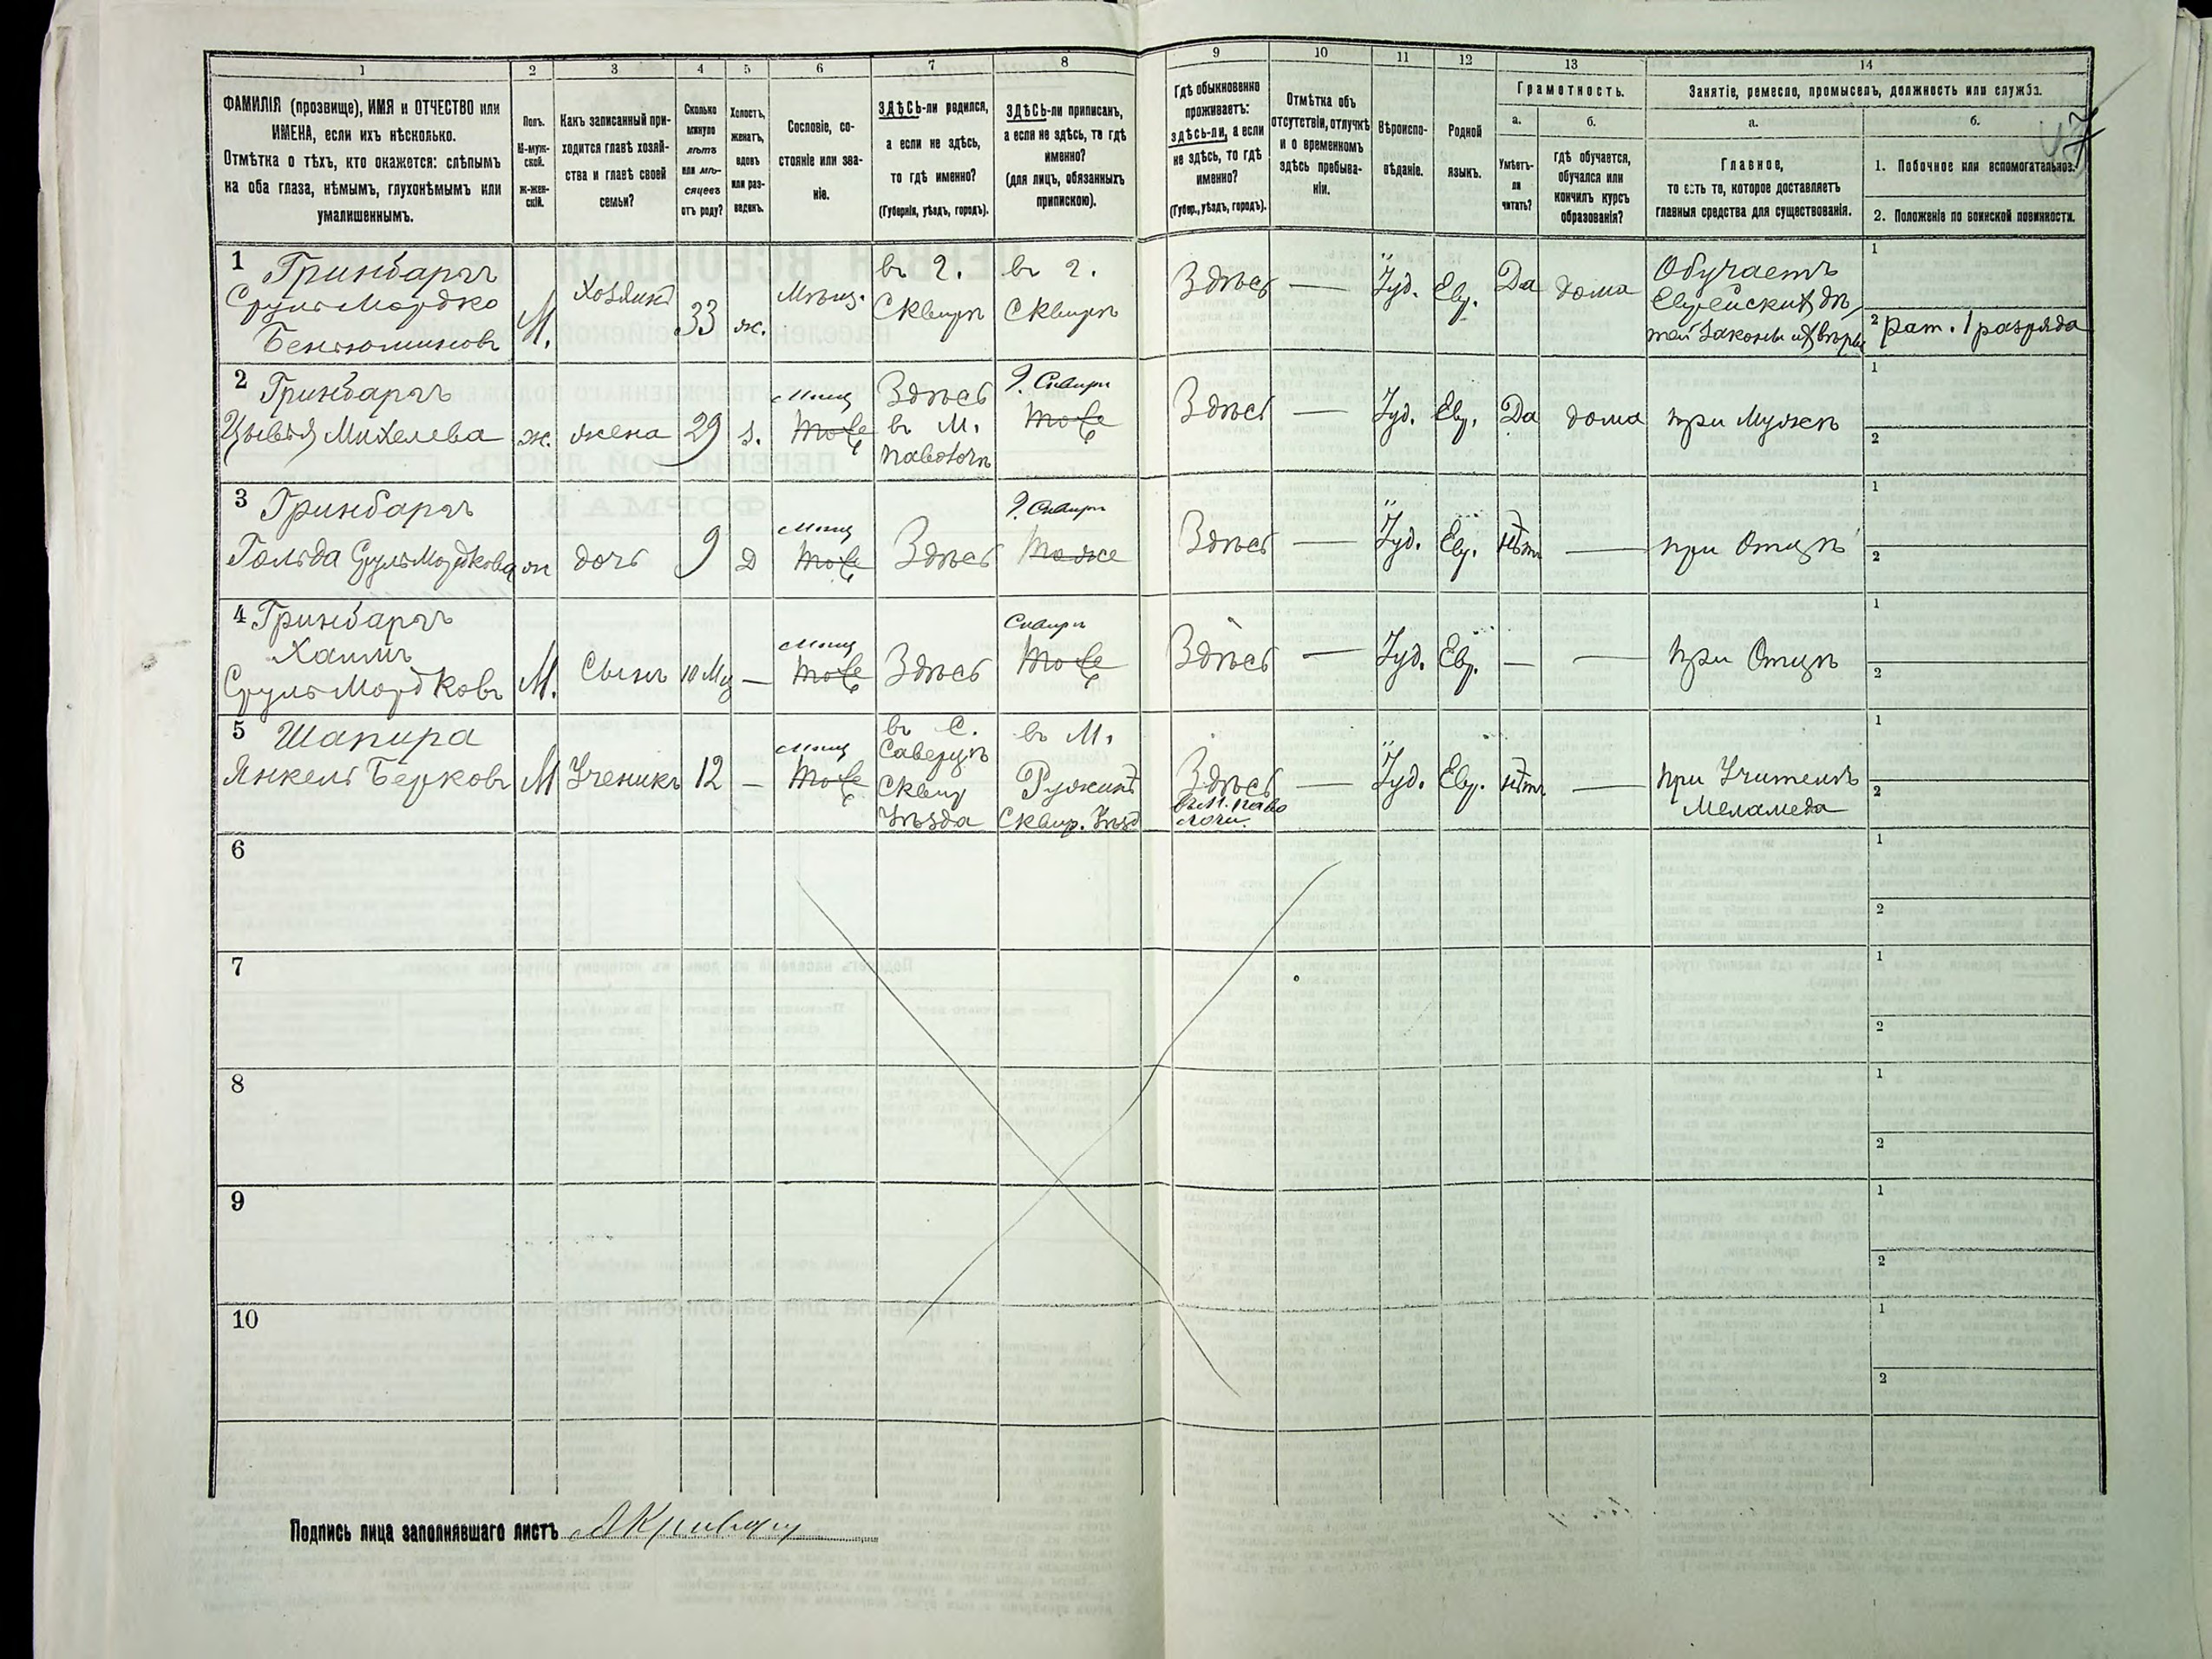 1 2 3 4 5 6 7 8 9 10 11 12 13 14
ФАМИЛІЯ (прозвище), ИМЯ и ОТЧЕСТВО или
ИМЕНА, если ихъ нѣсколько.
Отмѣтка о тѣхъ, кто окажется: слѣпымъ
на оба глаза, нѣмымъ, глухонѣмымъ или
умалишеннымъ.
Полъ.
М-муж-
ской.
Ж-жен-
скій.
Какъ записанный при-
ходится главѣ хозяй-
ства и главѣ своей
семьи?
Сколько
минуло
лѣтъ
или мѣ-
сяцевъ
отъ роду?
Холостъ,
женатъ,
вдовъ
или раз-
веденъ.
Сословіе, со-
стояніе или зва-
ніе.
ЗДѢСЬ-ли родился,
а если не здѣсь,
то гдѣ именно?
(Губернія, уѣздъ, городъ).
ЗДѢСЬ-ли приписанъ,
а если не здѣсь, то гдѣ
именно?
(для лицъ, обязанныхъ
припискою).
Гдѣ обыкновенно
проживаетъ:
здѣсь-ли, а если
не здѣсь, то гдѣ
именно?
(Губер., уѣздъ, городъ).
Отмѣтка объ
отсутствіи, отлучкѣ
и о временномъ
здѣсь пребыва-
ніи.
Вѣроиспо-
вѣданіе.
Родной
языкъ.
Грамотность.
а.
Умѣетъ-
ли
читать?
б.
гдѣ обучается,
обучался или
кончилъ курсъ
образованія?
Занятіе, ремесло, промыселъ, должность или служба.
а.
Главное,
то есть то, которое доставляетъ
главныя средства для существованія.
б.
1. Побочное или вспомогательное.
2. Положеніе по воинской повинности.
1 Гринбаргъ
Сруль Мордко
Беньюминовъ
М.
Хозяинъ
33
ж.
Мѣщ.
въ г.
Сквирѣ
въ г.
Сквирѣ
Здѣсь
—
Іуд.
Евр.
Да
дома
Обучаетъ
Еврейскихъ дѣ
тей Законы ихъ вѣры
1
2 рат. 1 разряда
2 Гринбаргъ
Цывья Михелева
ж.
жена
29
з.
мѣщ
тоже
Здѣсь
въ М.
Паволочѣ
г. Сквира
тоже
Здѣсь
—
Іуд.
Евр.
Да
дома
при Мужѣ
1
2
3 Гринбаргъ
Гольда СрульМордкова
ж
дочь
9
д
мѣщ
тоже
Здѣсь
г. Сквира
тоже
Здѣсь
—
Іуд.
Евр.
нѣтъ
—
при Отцѣ
1
2
4 Гринбаргъ
Хаимъ
СрульМордковъ
М.
Сынъ
10 Мц
—
мѣщ
тоже
Здѣсь
Сквира
тоже
Здѣсь
—
Іуд.
Евр.
—
—
при Отцѣ
1
2
5 Шапира
Янкель Берковъ
М
Ученикъ
12
—
мѣщ
тоже
въ С.
Саверцѣ
Сквир
Уѣзда
въ М.
Ружинѣ
Сквир. Уѣзд
Здѣсь
въ М. Паво
лочи.
—
Іуд.
Евр.
нѣтъ
—
при Учителѣ
Меламеда
1
2
6
1
2
7
1
2
8
1
2
9
1
2
10
1
2
Подпись лица заполнявшаго листъ